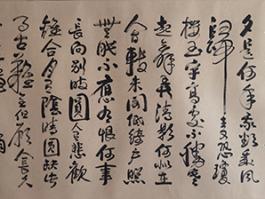 夕是何年我欲乘風
歸去又恐瓊
樓玉宇高處不勝寒
起舞弄清影何似在
人間轉朱閣低綺戶照
無眠不應有恨何事
長向別時圓人有悲歡
離合月有陰晴圓缺此
事古難全但願人長久